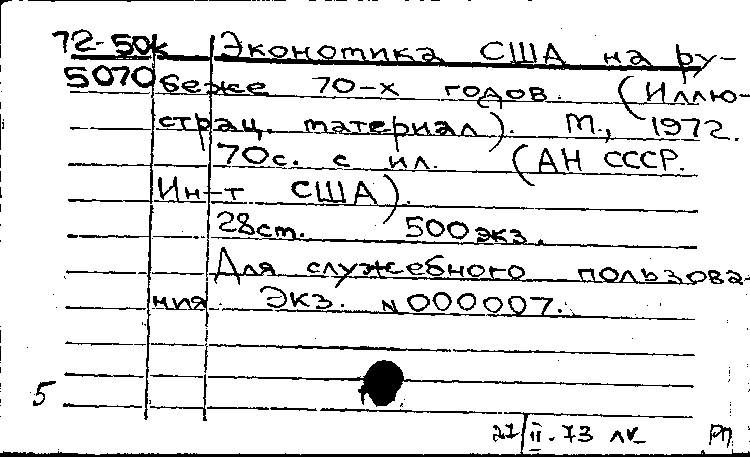 72-50к Экономика США на ру-
5070 беже 70-х годов. (Иллю-
страц. материал). М., 1972.
70с. с ил. (АН СССР.
Ин-т США).
28см. 500экз.
Для служебного пользова-
ния. Экз. N000007.
5
27/II-73 РП